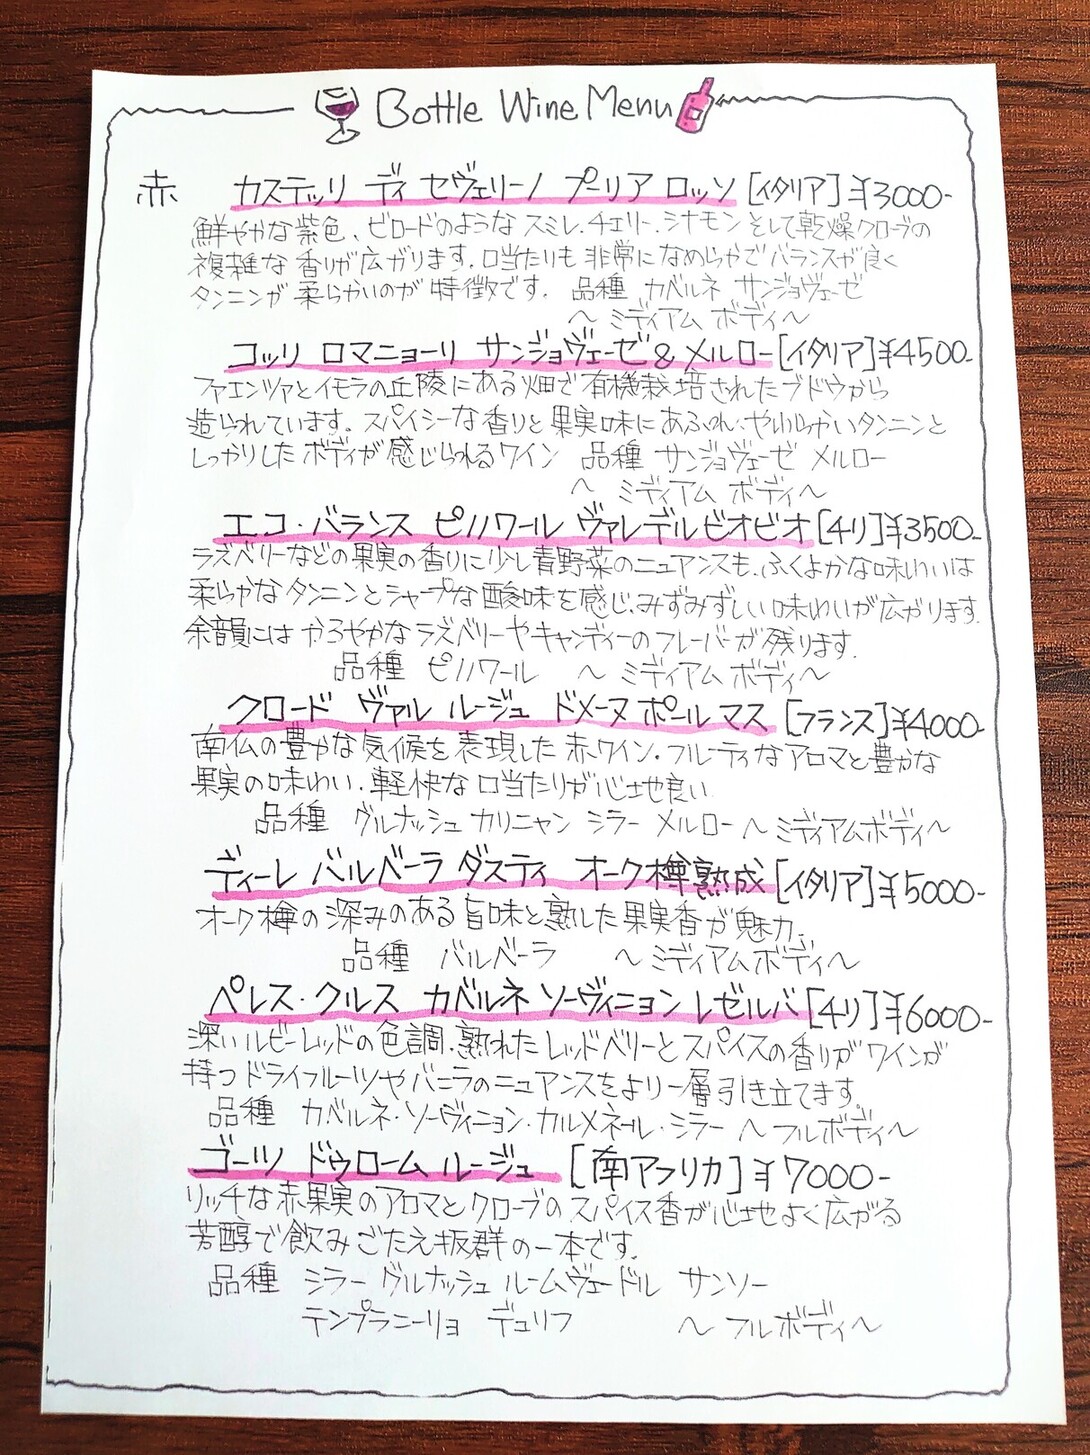 Bottle Wine Menu
赤 カステッリ ディ セヴェリーノ プーリア ロッソ [イタリア] ¥3000-
鮮やかな紫色、ビロードのようなスミレ.チェリー.シナモンそして乾燥クローブの
複雑な香りが広がります.口当たりも非常になめらかでバランスが良く
タンニンが柔らかいのが特徴です. 品種 カベルネ サンジョヴェーゼ
～ミディアム ボディ～
コッリ ロマニョーリ サンジョヴェーゼ&メルロー[イタリア]¥4500-
ファエンツァとイモラの丘陵にある畑で有機栽培されたブドウから
造られています. スパイシーな香りと果実味にあふれ、やわらかいタンニンと
しっかりしたボディが感じられるワイン 品種 サンジョヴェーゼ メルロー
～ ミディアム ボディ～
エコ・バランス ピノノワール ヴァレデルビオビオ[チリ]¥3500-
ラズベリーなどの果実の香りに少し青野菜のニュアンスも、ふくよかな味わいは
柔らかなタンニンとシャープな酸味を感じ、みずみずしい味わいが広がります.
余韻にはかろやかなラズベリーやキャンディーのフレーバーが残ります.
品種 ピノノワール ～ ミディアム ボディ～
クロード ヴァル ルージュ ドメーヌ ポール マス [フランス]¥4000-
南仏の豊かな気候を表現した赤ワイン. フルーティなアロマと豊かな
果実の味わい. 軽快な口当たりが心地良い
品種 グルナッシュ カリニャン シラー メルロー～ミディアムボディ～
ディーレ バルベーラ ダスティ オーク樽熟成[イタリア]¥5000-
オーク樽の深みのある旨味と熟した果実香が魅力.
品種 バルベーラ ～ミディアムボディ～
ペレス・クルス カベルネ ソーヴィニョン レゼルバ[チリ]¥6000-
深いルビーレッドの色調.熟れたレッドベリーとスパイスの香りがワインが
持つドライフルーツやバニラのニュアンスをより一層引き立てます.
品種 カベルネ・ソーヴィニョン・カルメネール・シラー ～フルボディ～
ゴーツ ドゥローム ルージュ [南アフリカ]¥7000-
リッチな赤果実のアロマとクローブのスパイス香が心地よく広がる
芳醇で飲みごたえ抜群の一本です.
品種 シラー グルナッシュ ルームヴェードル サンソー
テンプラニーリョ デュリフ ～ フルボディ～